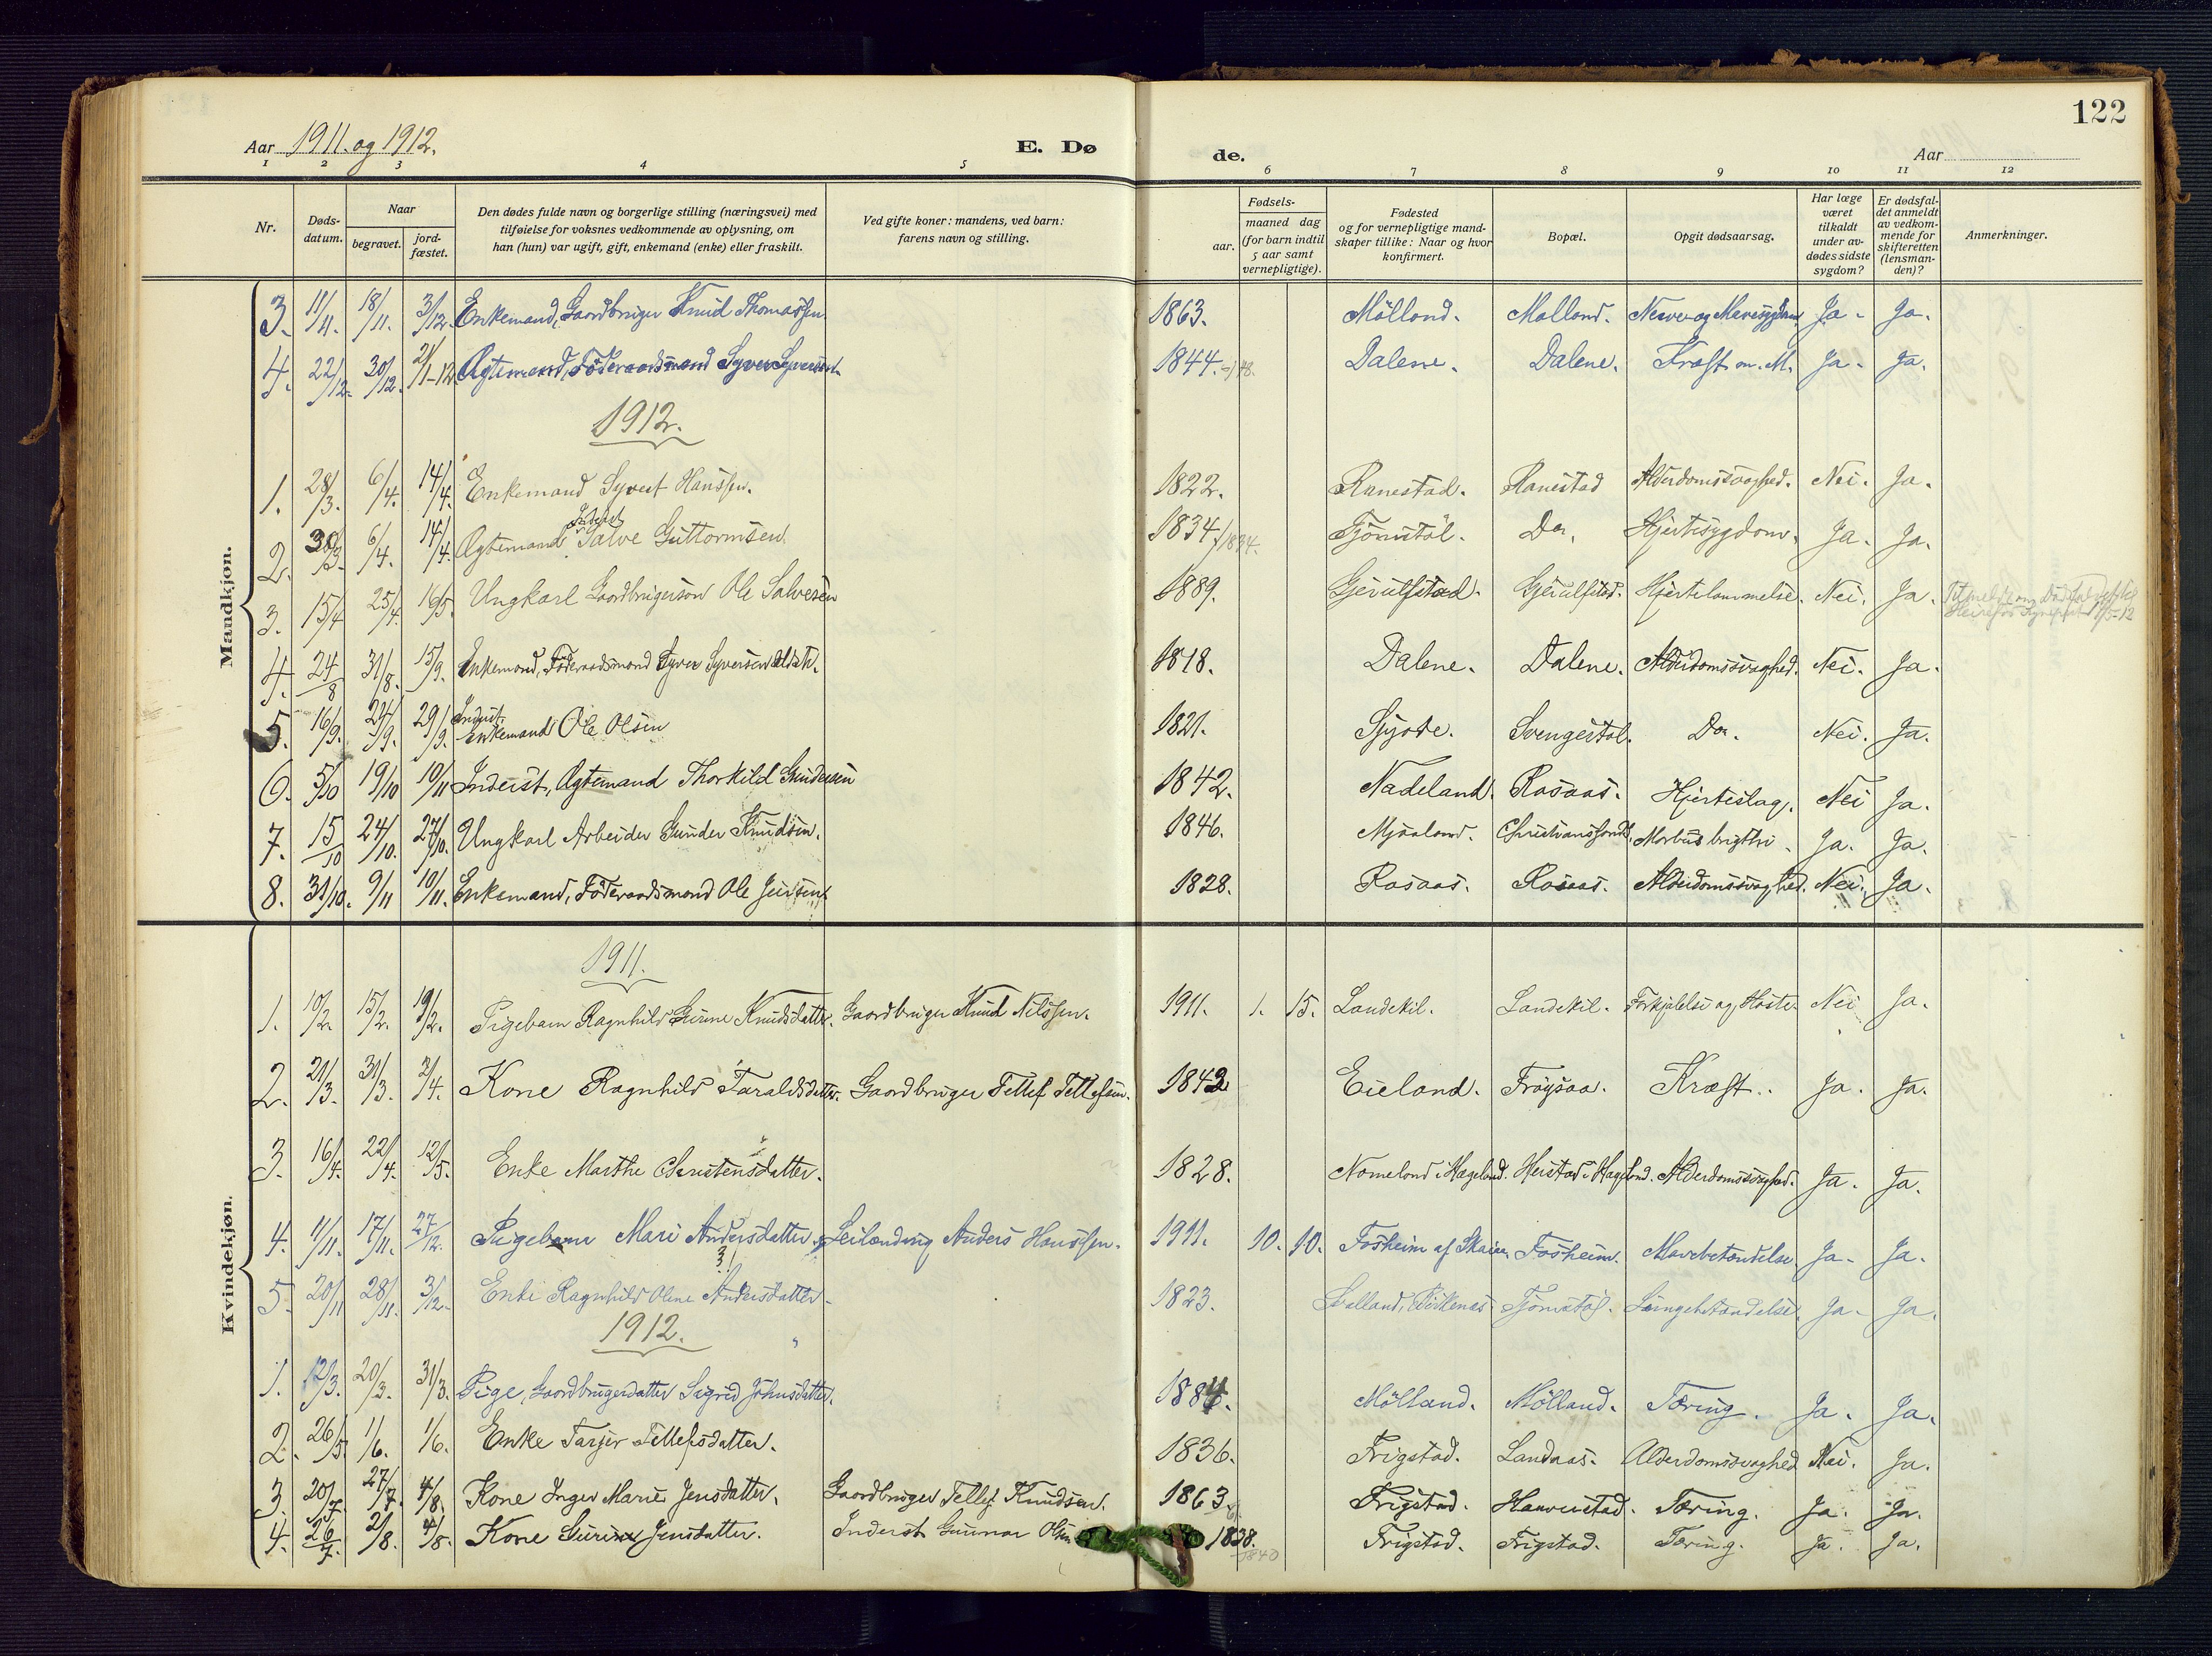 122
Aar 1911. og 1912.
E. Dø
de.
Aar
1 2 3 4 5 6 7 8 9 10 11 12
Nr.
Døds-
datum.
Naar
begravet.
jord-
fæstet.
Den dødes fulde navn og borgerlige stilling (næringsvei) med
tilføielse for voksnes vedkommende av oplysning, om
han (hun) var ugift, gift, enkemand (enke) eller fraskilt.
Ved gifte koner: mandens, ved barn:
farens navn og stilling.
Fødsels-
aar.
maaned dag
(for barn indtil
5 aar samt
vernepligtige).
Fødested
og for vernepligtige mand-
skaper tillike: Naar og hvor
konfirmert.
Bopæl.
Opgit dødsaarsag.
Har læge
været
tilkaldt
under av-
dødes sidste
sygdom?
Er dødsfal-
det anmeldt
av vedkom-
mende for
skifteretten
(lensman-
den)?
Anmerkninger.
Mandkjøn.
3. 11/11. 18/11. 3/12. Enkemand, Gaardbruger Knud Thomassen 1863. Mølland. Mølland. Ja. Ja.
4. 22/12. 30/12. 21/1-12 Ægtemand, Føderaadsmand Syver Syversen 1844. Dalene. Dalene. Kræft Ja. Ja.
1912.
1. 28/3. 6/4. 14/4. Enkemand Syvert Hanssen. 1822. Ranestad. Ranestad Alderdomssvaghed. Nei. Ja.
2. 30/3. 6/4. 14/4. Ægtemand Inderst Salve Guttormsen. 1834. 1834. Tjømstøl. Do. Hjertesygdom. Ja. Ja.
3. 15/4 25/4. 16/5. Ungkarl Gaardbrugerson Ole Salvesen 1889. Gjeiulfstad. Gjeiulfstad. Hjertelammelse. Nei. Ja.
4. 24/8 31/8. 15/9. Enkemand, Føderaadsmand Syver Syversen 1818. Dalene. Dalene. Alderdomssvaghed. Nei. Ja.
5. 16/9. 24/9. 29/9. Inderst, Enkemand Ole Olsen 1821. Svengestøl. Do. Nei. Ja.
6. 5/10 19/10 10/11 Inderst, Ægtemand Thorkild Gundersen 1842. Nadeland. Rosaas. Hjerteslag. Nei Ja.
7. 15/10 24/10. 27/10. Ungkarl Arbeider Gunder Knudsen. 1846. Mjaaland. Morbus brigthi. Ja. Ja.
8. 31/10. 9/11 10/11. Enkemand, Føderaadsmand Ole Jensen 1828. Rosaas. Rosaas. Alderdomssvaghed. Nei. Ja.
Kvindekjøn.
1911.
1. 10/2. 15/2. 19/2. Pigebarn Ragnhild Gurine Knudsdatter. Gaardbruger Knud Nilssen. 1911. 1. 15. Landekil. Landekil. Forkjølelse og Hoste Nei Ja.
2. 21/3. 31/3. 2/4. Kone Ragnhild Taraldsdatter. Gaardbruger Tellef Tellefsen. 1842 Eieland. Frøysaa. Kræft. Ja. Ja.
3. 16/4. 22/4. 12/5. Enke Marthe Christensdatter. 1828. Nomeland i Hægeland. Heistad i Hægeland. Alderdomssvaghed. Ja. Ja.
4. 11/11. 17/11. 27/12. Pigebarn Mari Andersdatter. Leilænding Anders Hanssen. 1911. 10. 10. Fosheim af Skaien. Fosheim. Mavebetændelse. Ja. Ja.
5. 20/11 28/11. 3/12. Enke Ragnhild Oline Andersdatter. 1823. Birkenes. Tjømstøl. Lungebetændelse. Ja. Ja.
1912.
1. 12/3. 20/3. 31/3. Pige, Gaardbrugerdatter Sigrid Johnsdatter. 1884. Mølland. Mølland. Tæring. Ja. Ja.
2. 26/5. 1/6. 1/6. Enke Tarjer Tellefsdatter. 1836. Frigstad. Landaas. Alderdomssvaghed Nei. Ja.
3. 20/7. 27/7. 4/8. Kone Inger Marie Jensdatter. Gaardbruger Tellef Knudsen. 1863. Frigstad. Haaverstad. Tæring. Ja. Ja.
4. 26/7. 2/8. 4/8. Kone Gurine Jensdatter. Inderst Gunnar Olsen 1838. 1840 Frigstad. Frigstad. Tæring. Ja. Ja.